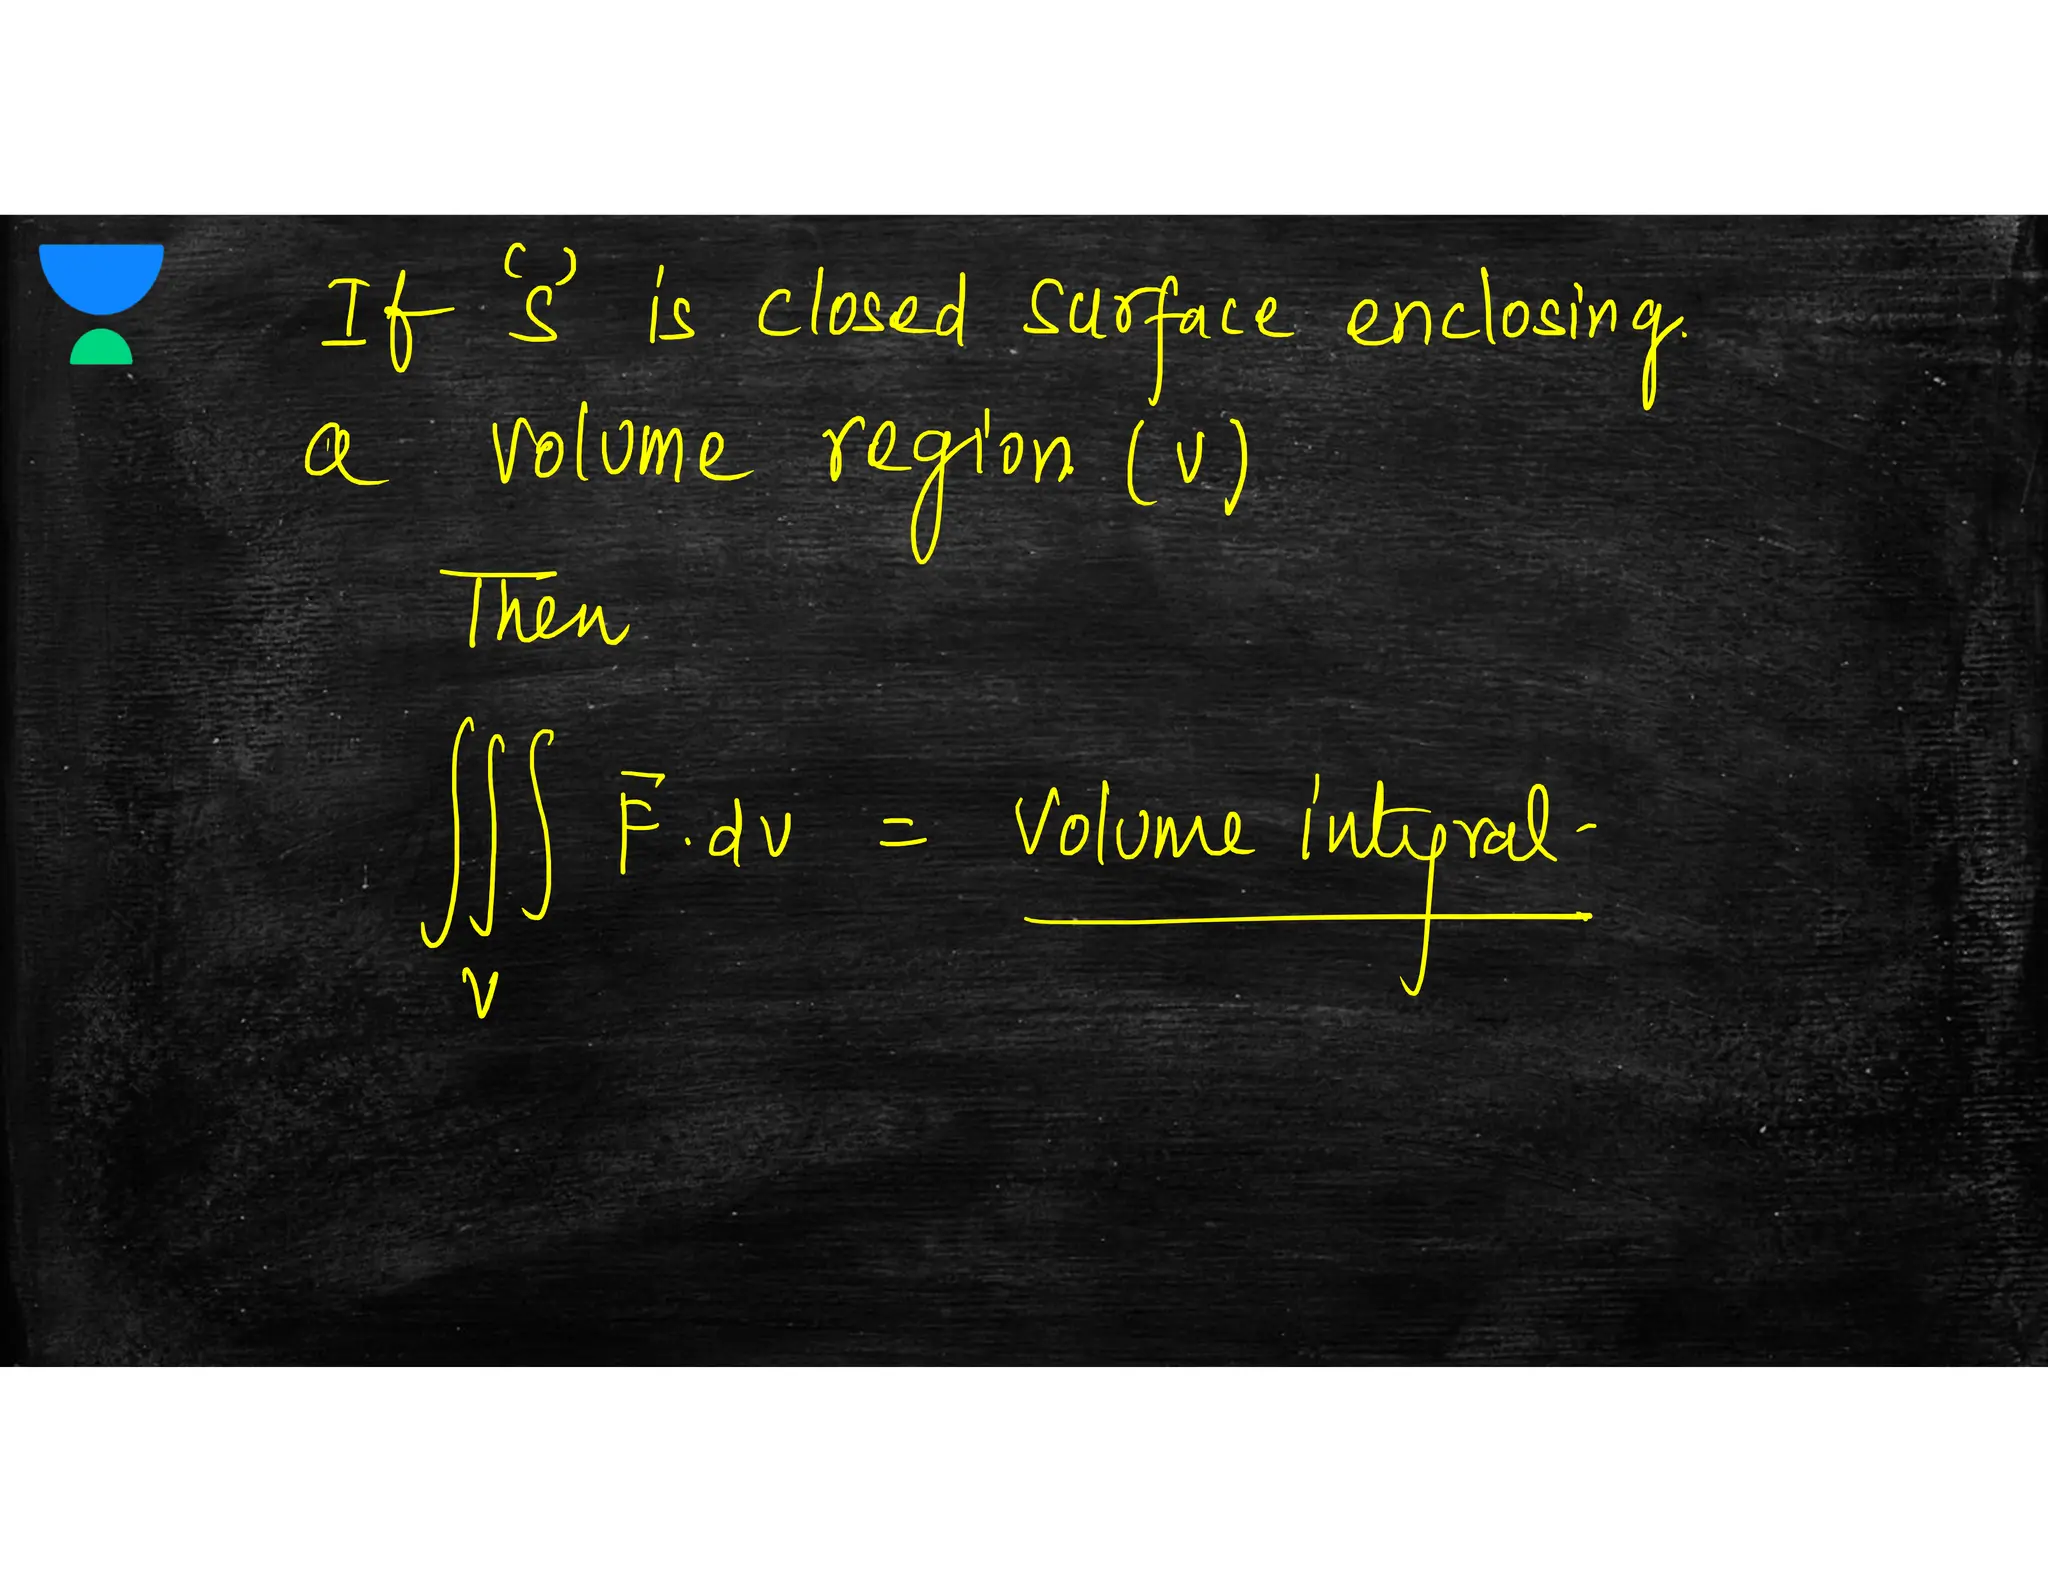 If 'S' is closed surface enclosing.
a volume region (v)
Then
∭ F̅.dv = Volume integral-
V